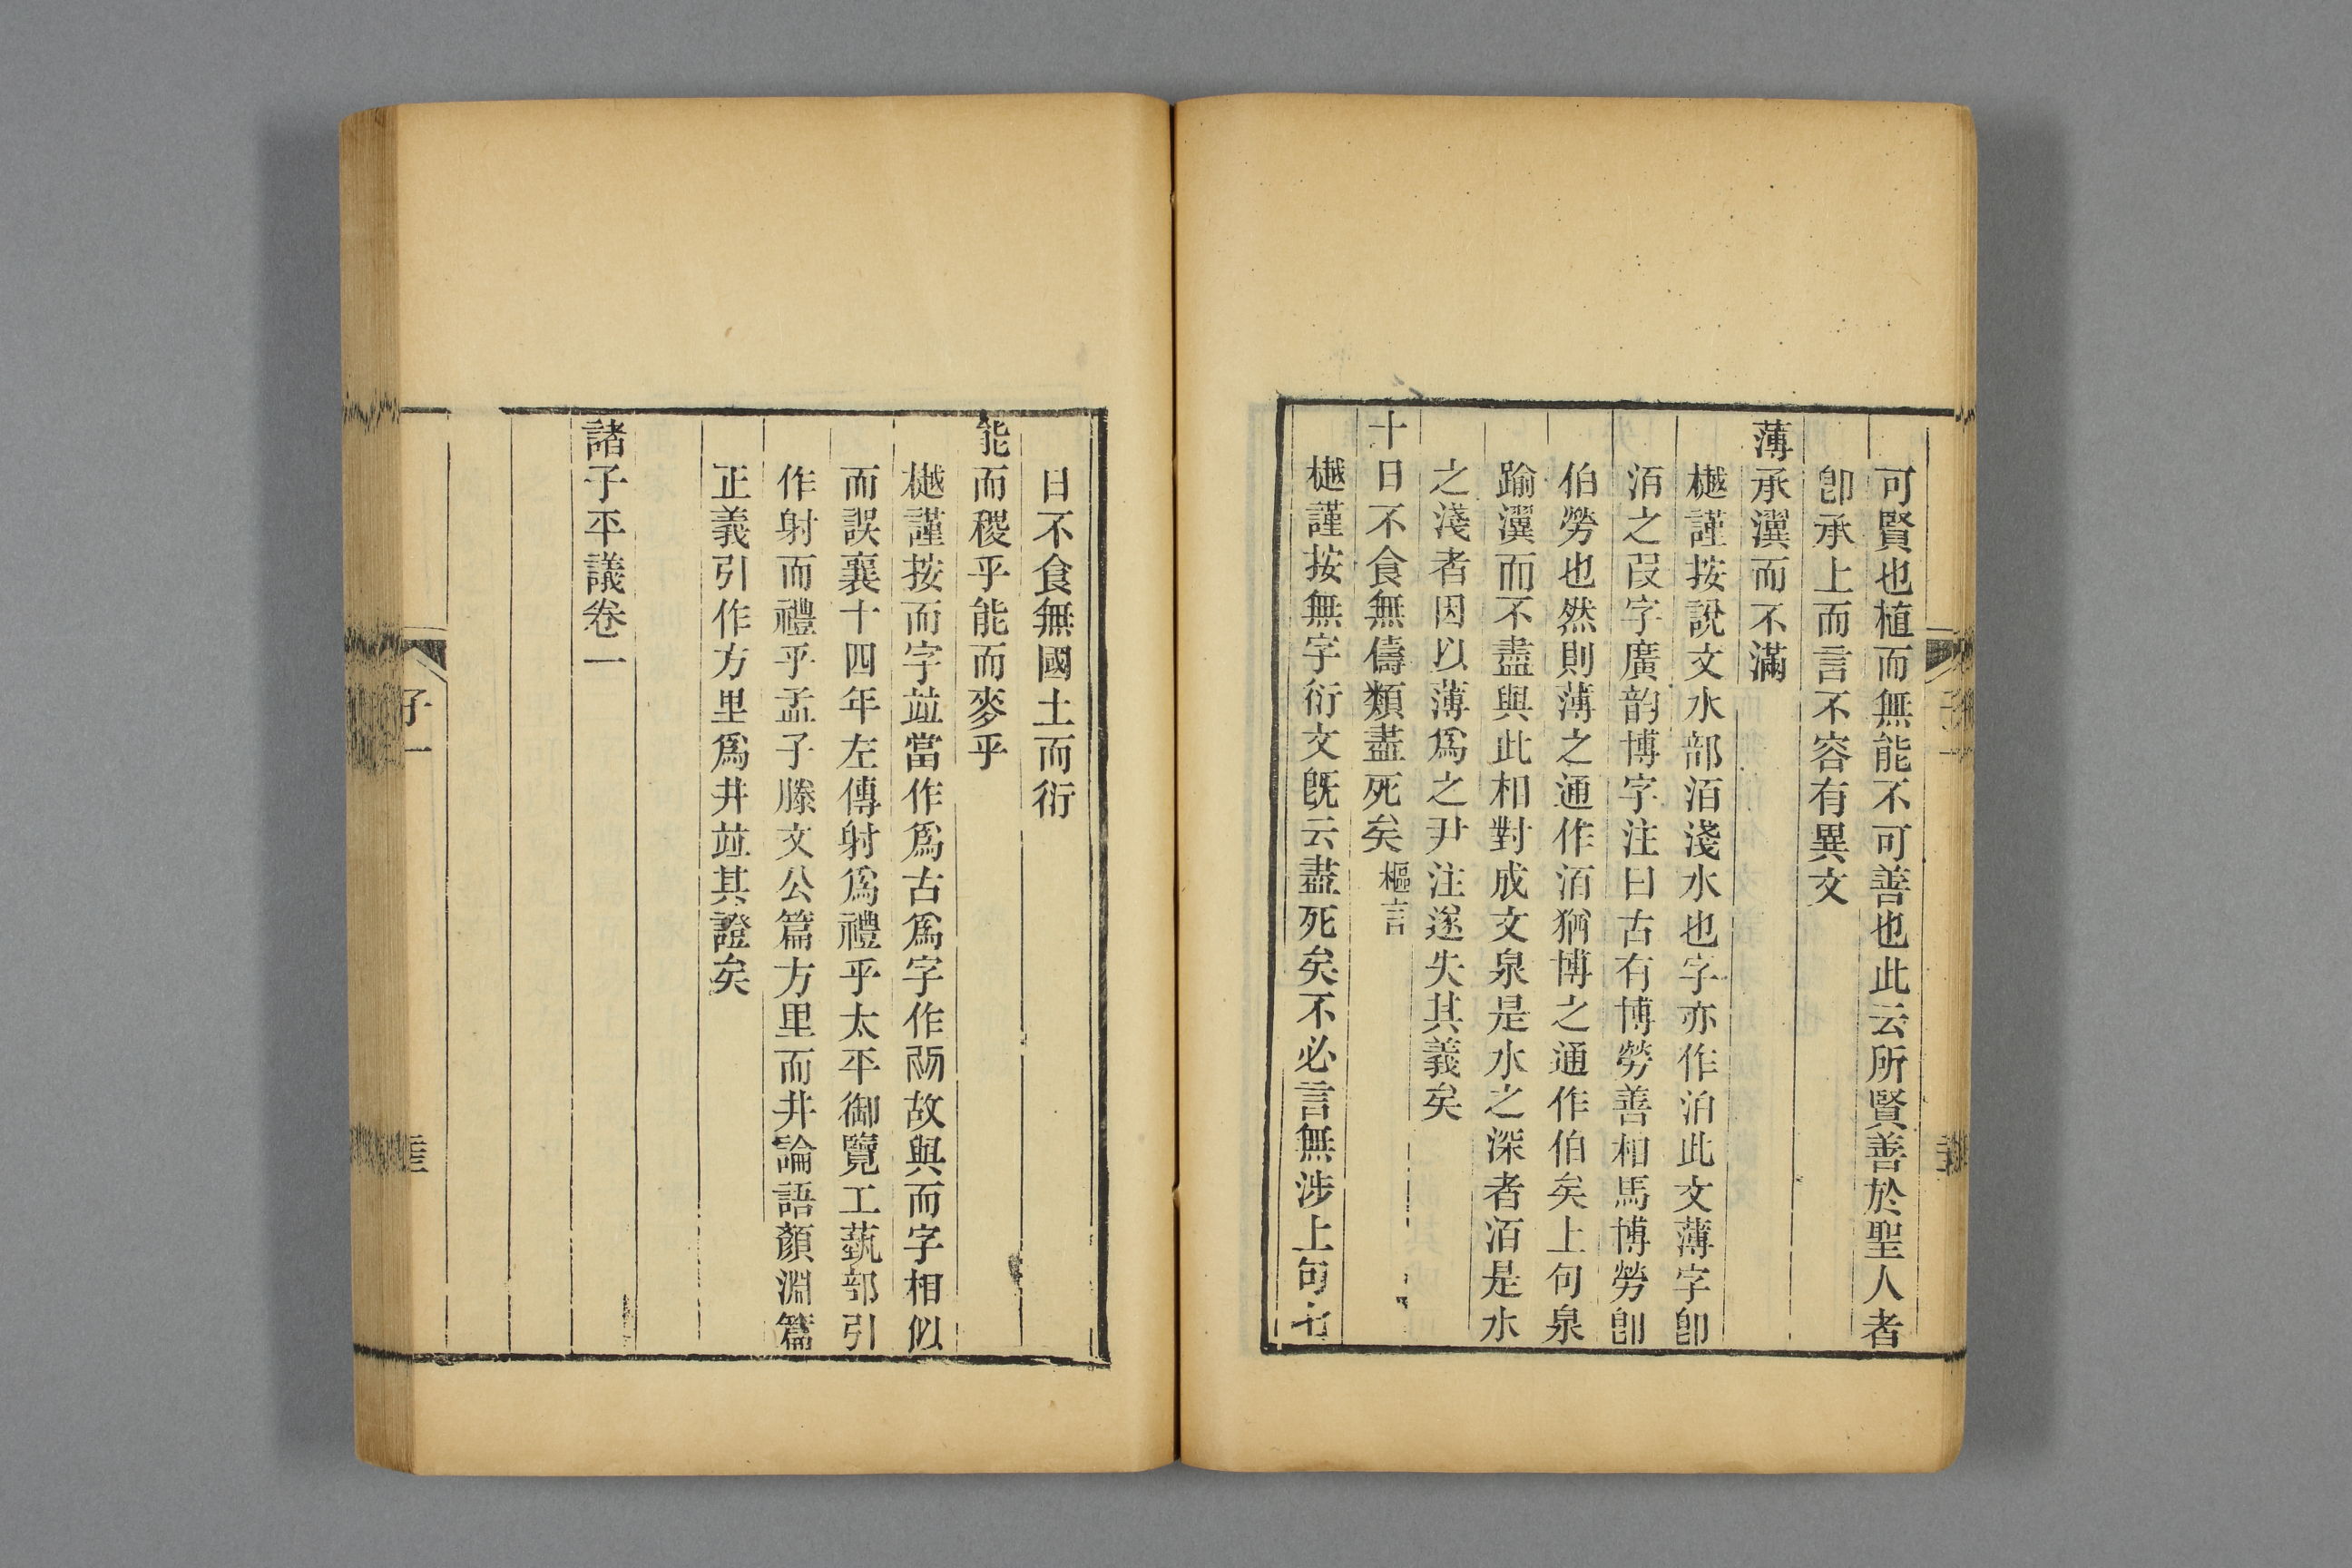 可賢也植而無能不可善也此云所賢善於聖人者
卽承上而言不容有異文
薄承瀷而不滿
樾謹按說文水部洦淺水也字亦作泊此文薄字卽
洦之叚字廣韵博字注曰古有博勞善相馬博勞卽
伯勞也然則薄之通作洦猶博之通作伯矣上句泉
踰瀷而不盡與此相對成文泉是水之深者洦是水
之淺者因以薄爲之尹注遂失其義矣
十日不食無儔類盡死矣樞言
樾謹按無字衍文旣云盡死矣不必言無涉上句七
日不食無國土而衍
能而稷乎能而麥乎
樾謹按而字竝當作爲古爲字作𤓸故與而字相似
而誤襄十四年左傳射爲禮乎太平御覽工蓺部引
作射而禮乎孟子滕文公篇方里而井論語顏淵篇
正義引作方里爲井竝其證矣
諸子平議卷一
子一